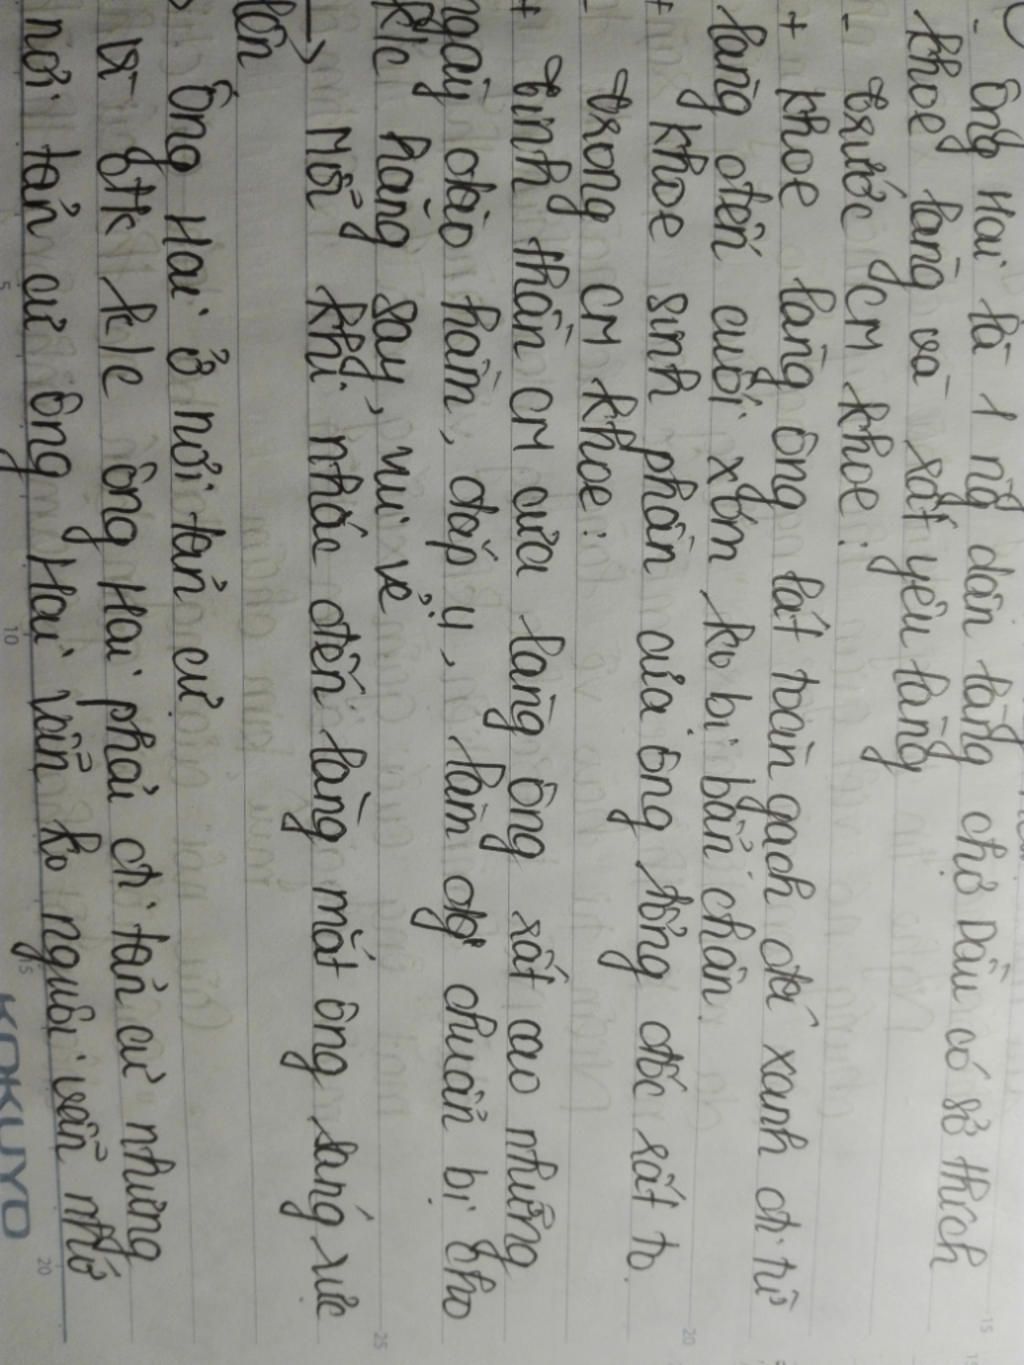 - ông Hai là 1 ng dân làng chợ Dầu có sở thích
khoe làng và rất yêu làng
- trước CM khoe:
+ khoe làng ông lát toàn gạch đá xanh đi từ
làng đến cuối xóm ko bị bẩn chân.
+ khoe sinh phần của ông tổng đốc rất to.
- trong CM khoe:
+ tinh thần CM của làng ông rất cao những
ngày đào hầm, đắp ụ, làm đg chuẩn bị cho
k/c hăng say, vui vẻ
→ Mỗi khi nhắc đến làng mắt ông sáng rực
lên
Ông Hai ở nơi tản cư
Vì gtk k/c ông Hai phải đi tản cư nhưng
nơi tản cư ông Hai vẫn ko nguôi vẫn nhớ
KOKUYO